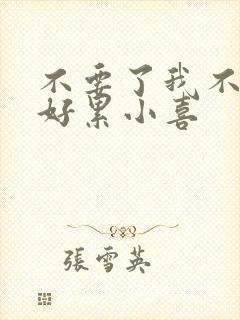 不要了我不
好累小喜
張雪英